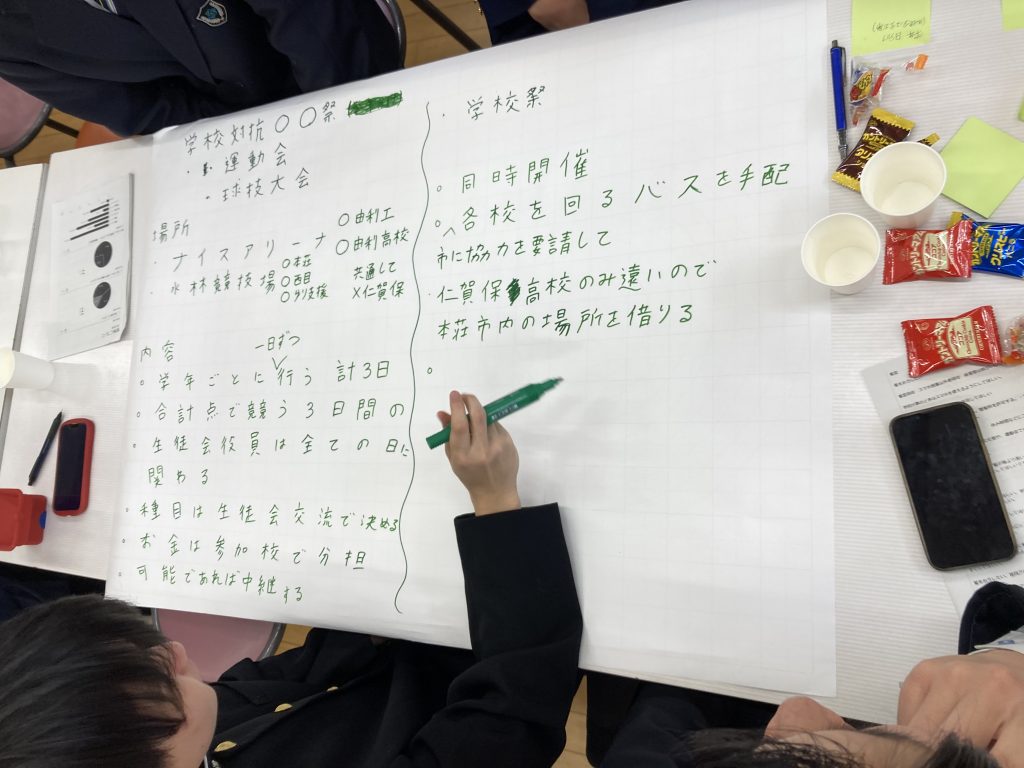 学校対抗〇〇祭
・運動会
・球技大会
場所
・ナイスアリーナ
・水林競技場
〇由利工
〇由利高校
〇本荘
〇西目
〇ゆり支援
共通して
×仁賀保
内容
一日ずつ
〇学年ごとに行う 計3日
〇合計点で競う3日間の
〇生徒会役員は全ての日に
関わる
〇種目は生徒会交流で決める
〇お金は参加校で分担
〇可能であれば中継する
・学校祭
〇同時開催
〇各校を回るバスを手配
市に協力を要請して
・仁賀保高校のみ遠いので
本荘市内の場所を借りる
〇